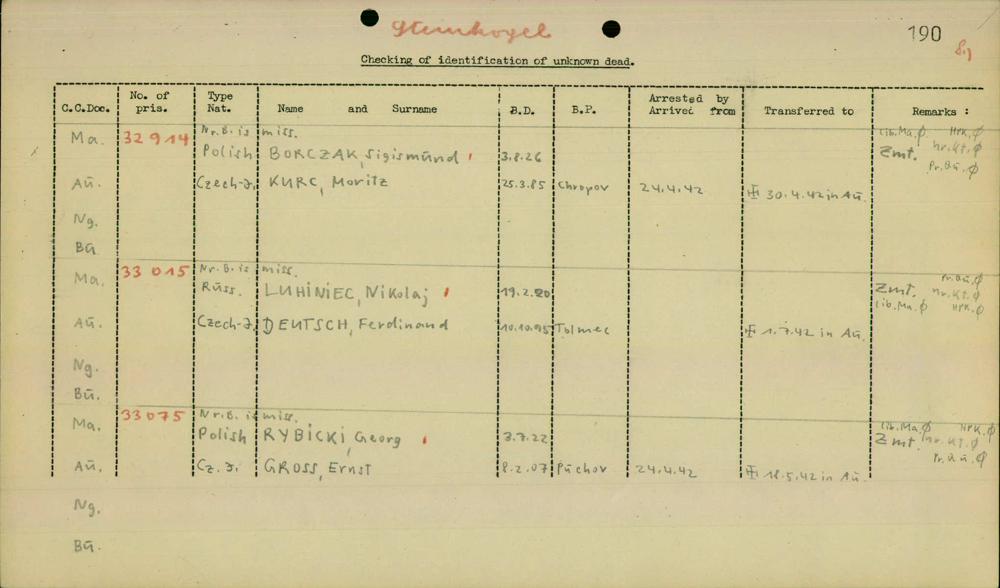 Steinkogel
190
Checking of identification of unknown dead.
C.C.Doc. No. of pris. Type Nat. Name and Surname B.D. B.P. Arrested by Arrived from Transferred to Remarks :
Nr.B. is miss. lib.Ma. Ø HPK. Ø
Ma. 32 914 Polish BORCZAK, Sigismund 3.8.26 Zmt. nr.Kt. Ø
Pr.Bü. Ø
Aü. Czech-J. KURC, Moritz 25.3.85 Chropov 24.4.42 30.4.42 in Aü.
Ng.
Bü.
Ma. 33 015 Nr.B. is miss. Pr.Bü. Ø
Russ. LUHINIEC, Nikolaj 19.2.20 Zmt. nr.Kt. Ø
lib.Ma. Ø HPK. Ø
Aü. Czech-J. DEUTSCH, Ferdinand 10.10.95 Tolmec 1.7.42 in Aü.
Ng.
Bü.
Ma. 33 075 Nr.B. is miss. lib.Ma. Ø HPK. Ø
Polish RYBICKI, Georg 3.7.22 Zmt. nr.Kt. Ø
Aü. Cz. J. GROSS, Ernst 8.2.07 Púchov 24.4.42 18.5.42 in Aü.
Ng.
Bü.